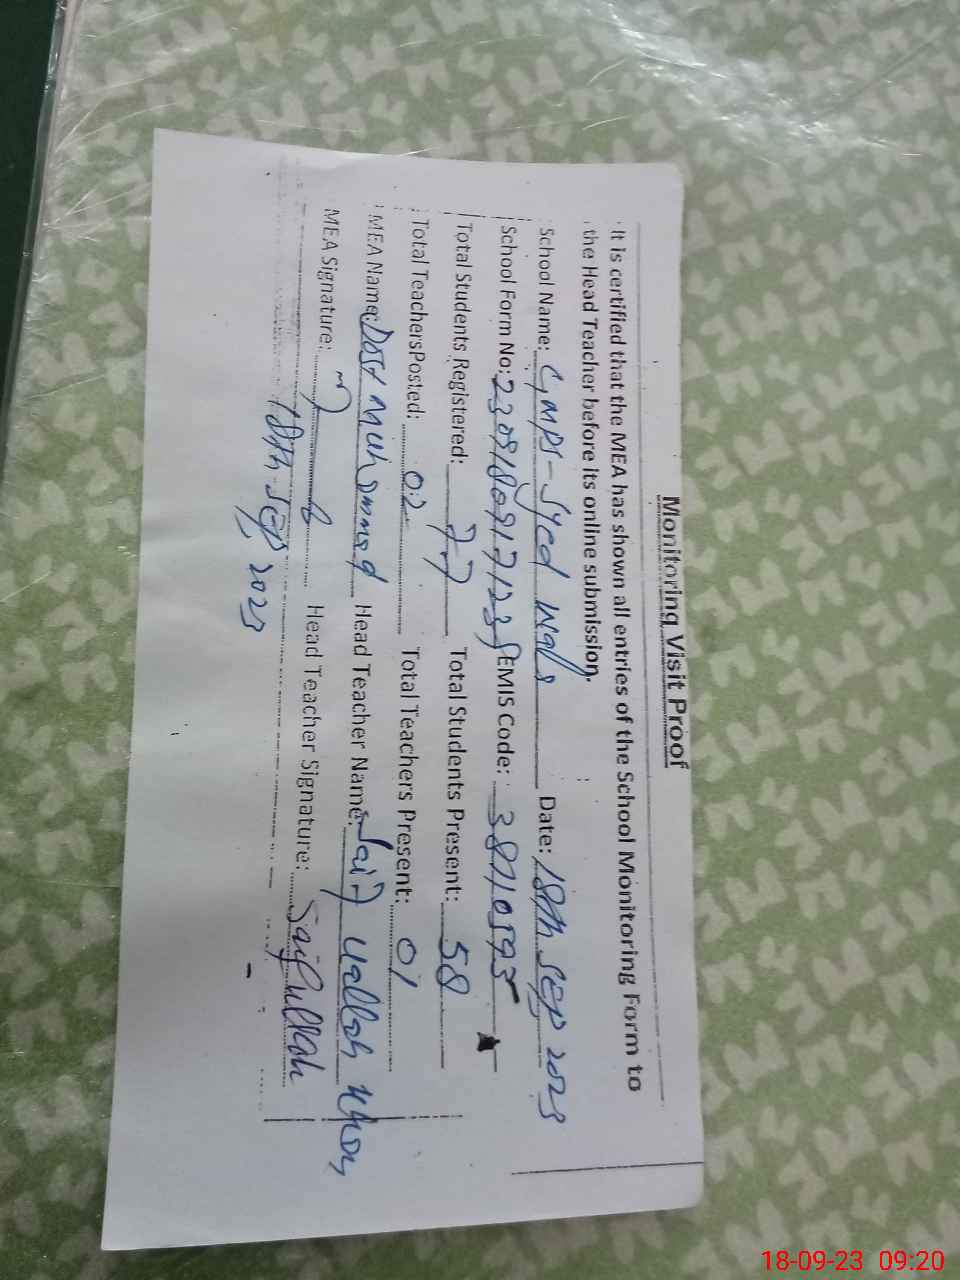 Monitoring Visit Proof
It is certified that the MEA has shown all entries of the School Monitoring Form to
the Head Teacher before its online submission.
School Name: GMPS-Syed Wala Date: 18th Sep 2023
School Form No: EMIS Code:
Total Students Registered: 77 Total Students Present: 58
Total TeachersPosted: 02 Total Teachers Present: 01
MEA Name: Dost Muhammad Head Teacher Name: Saif uallah Khan
MEA Signature: Head Teacher Signature: Saifullah
18th Sep 2023
18-09-23 09:20